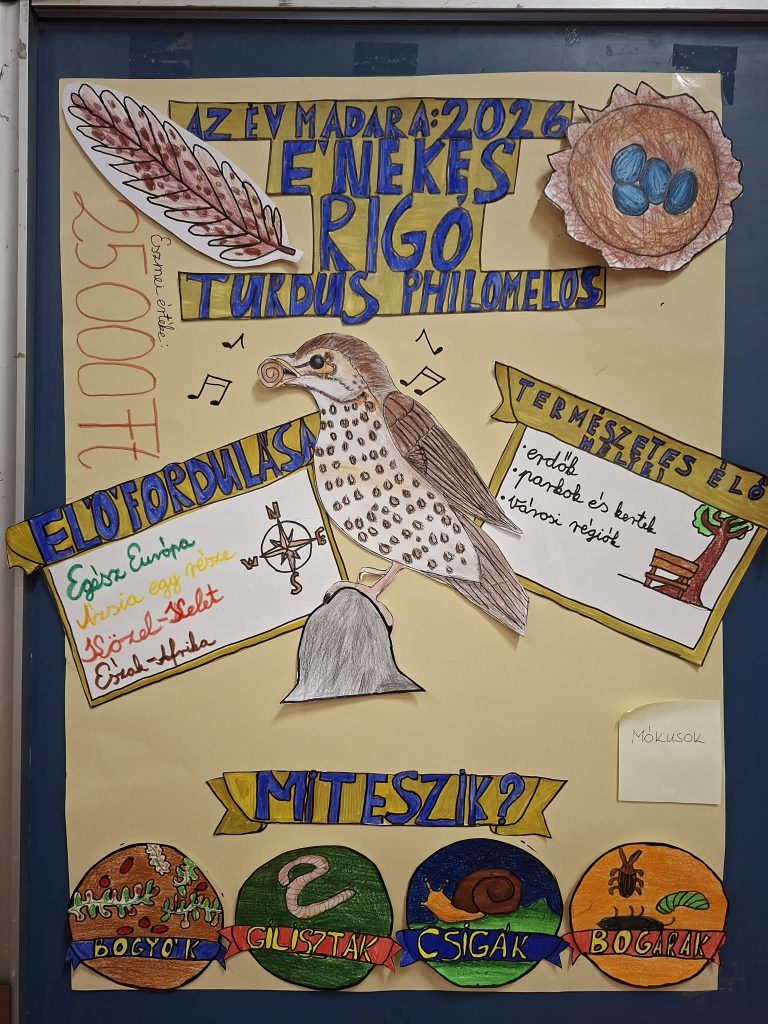 AZ ÉV MADARA: 2026
ÉNEKES
RIGÓ
TURDUS PHILOMELOS
Eszmei értéke:
25000 Ft
ELŐFORDULÁSA
Egész Európa
Ázsia egy része
Közel-Kelet
Észak-Afrika
N
E
S
W
TERMÉSZETES ÉLŐ
HELYEI
• erdők
• parkok és kertek
• városi régiók
MÓKUSOK
MIT ESZIK?
BOGYÓK
GILISZTÁK
CSIGÁK
BOGARAK